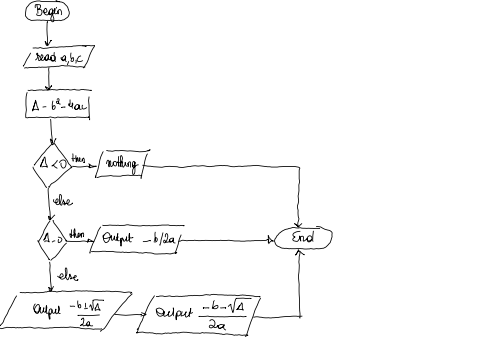 Begin
read a,b,c
Δ - b² - 4ac
Δ < 0
then
nothing
else
Δ - 0
then
Output -b/2a
End
else
Output -b+√Δ/2a
Output -b-√Δ/2a